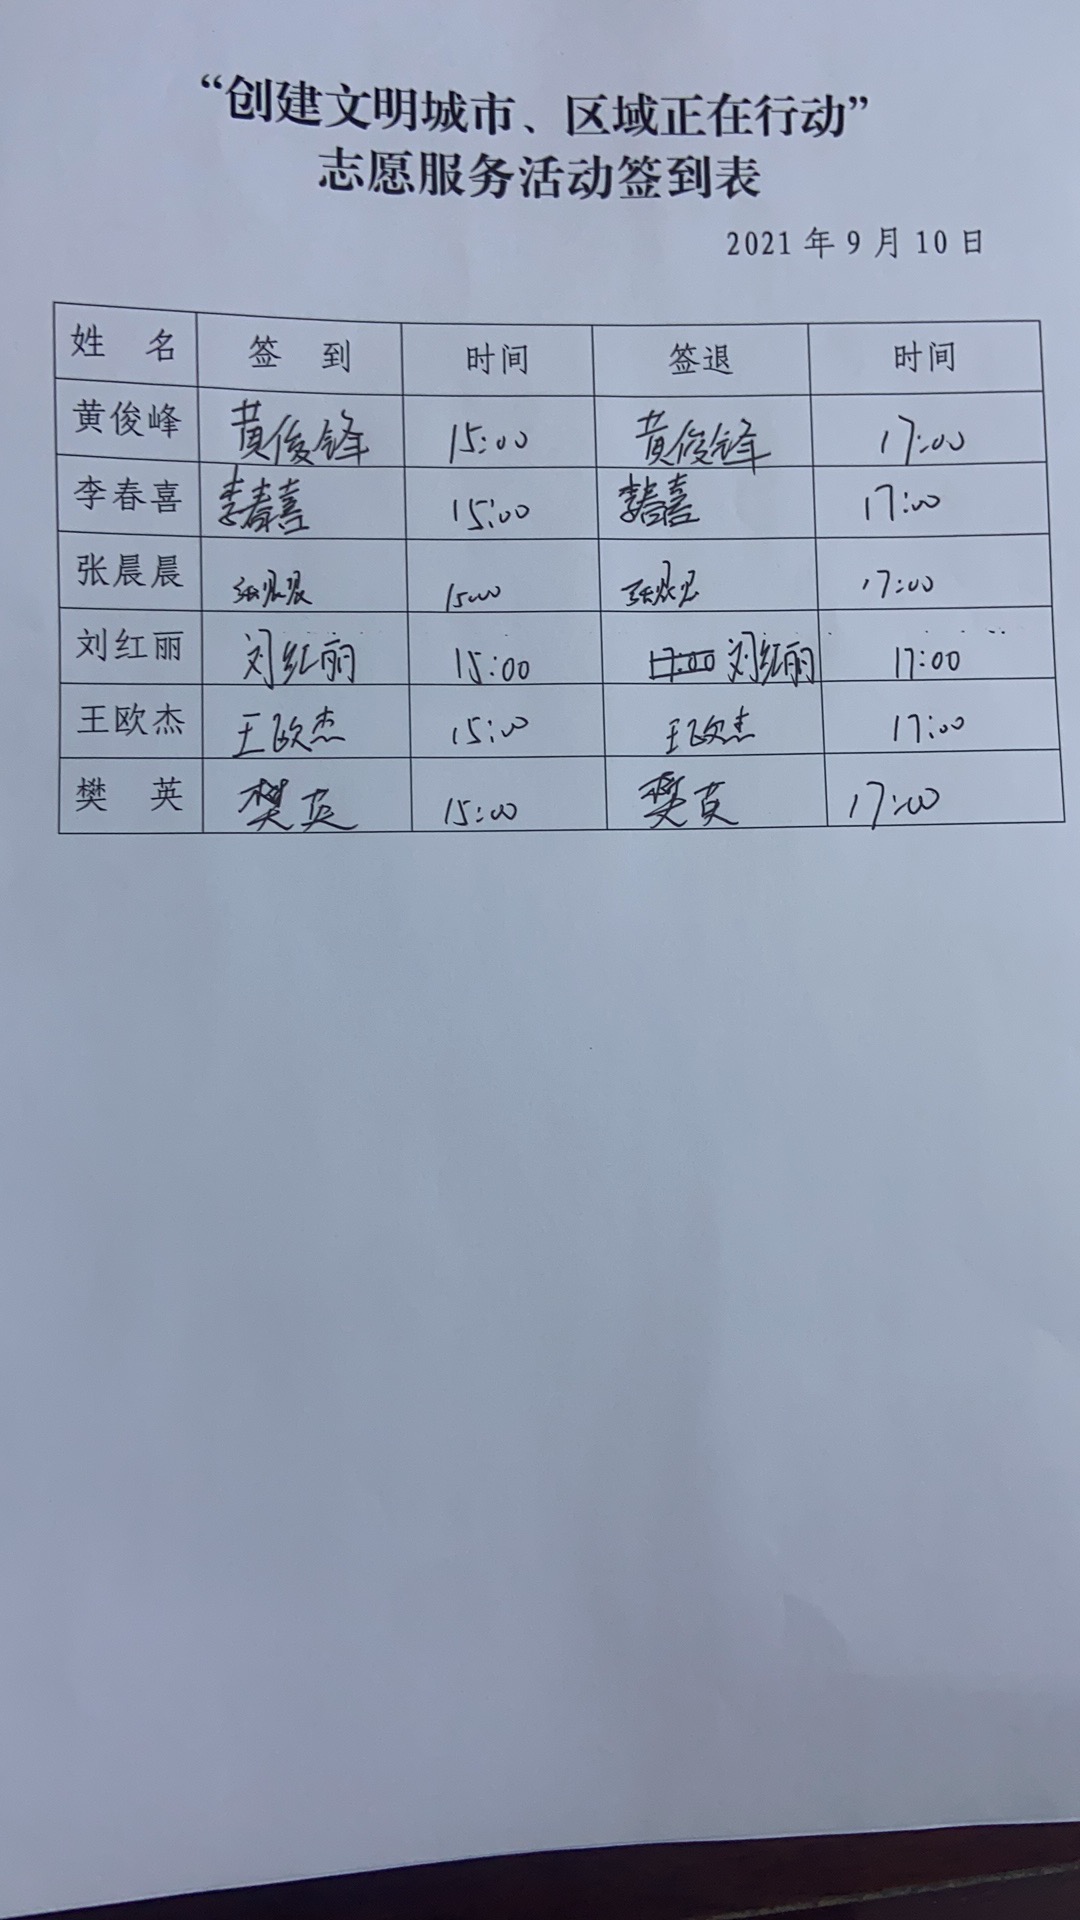 “创建文明城市、区域正在行动”
志愿服务活动签到表
2021年9月10日
姓 名 签 到 时间 签退 时间
黄俊峰 黄俊锋 15:00 黄俊锋 17:00
李春喜 李春喜 15:00 李春喜 17:00
张晨晨 张晨晨 15:00 张晨晨 17:00
刘红丽 刘红丽 15:00 17:00 刘红丽 17:00
王欧杰 王欧杰 15:00 王欧杰 17:00
樊 英 樊英 15:00 樊英 17:00